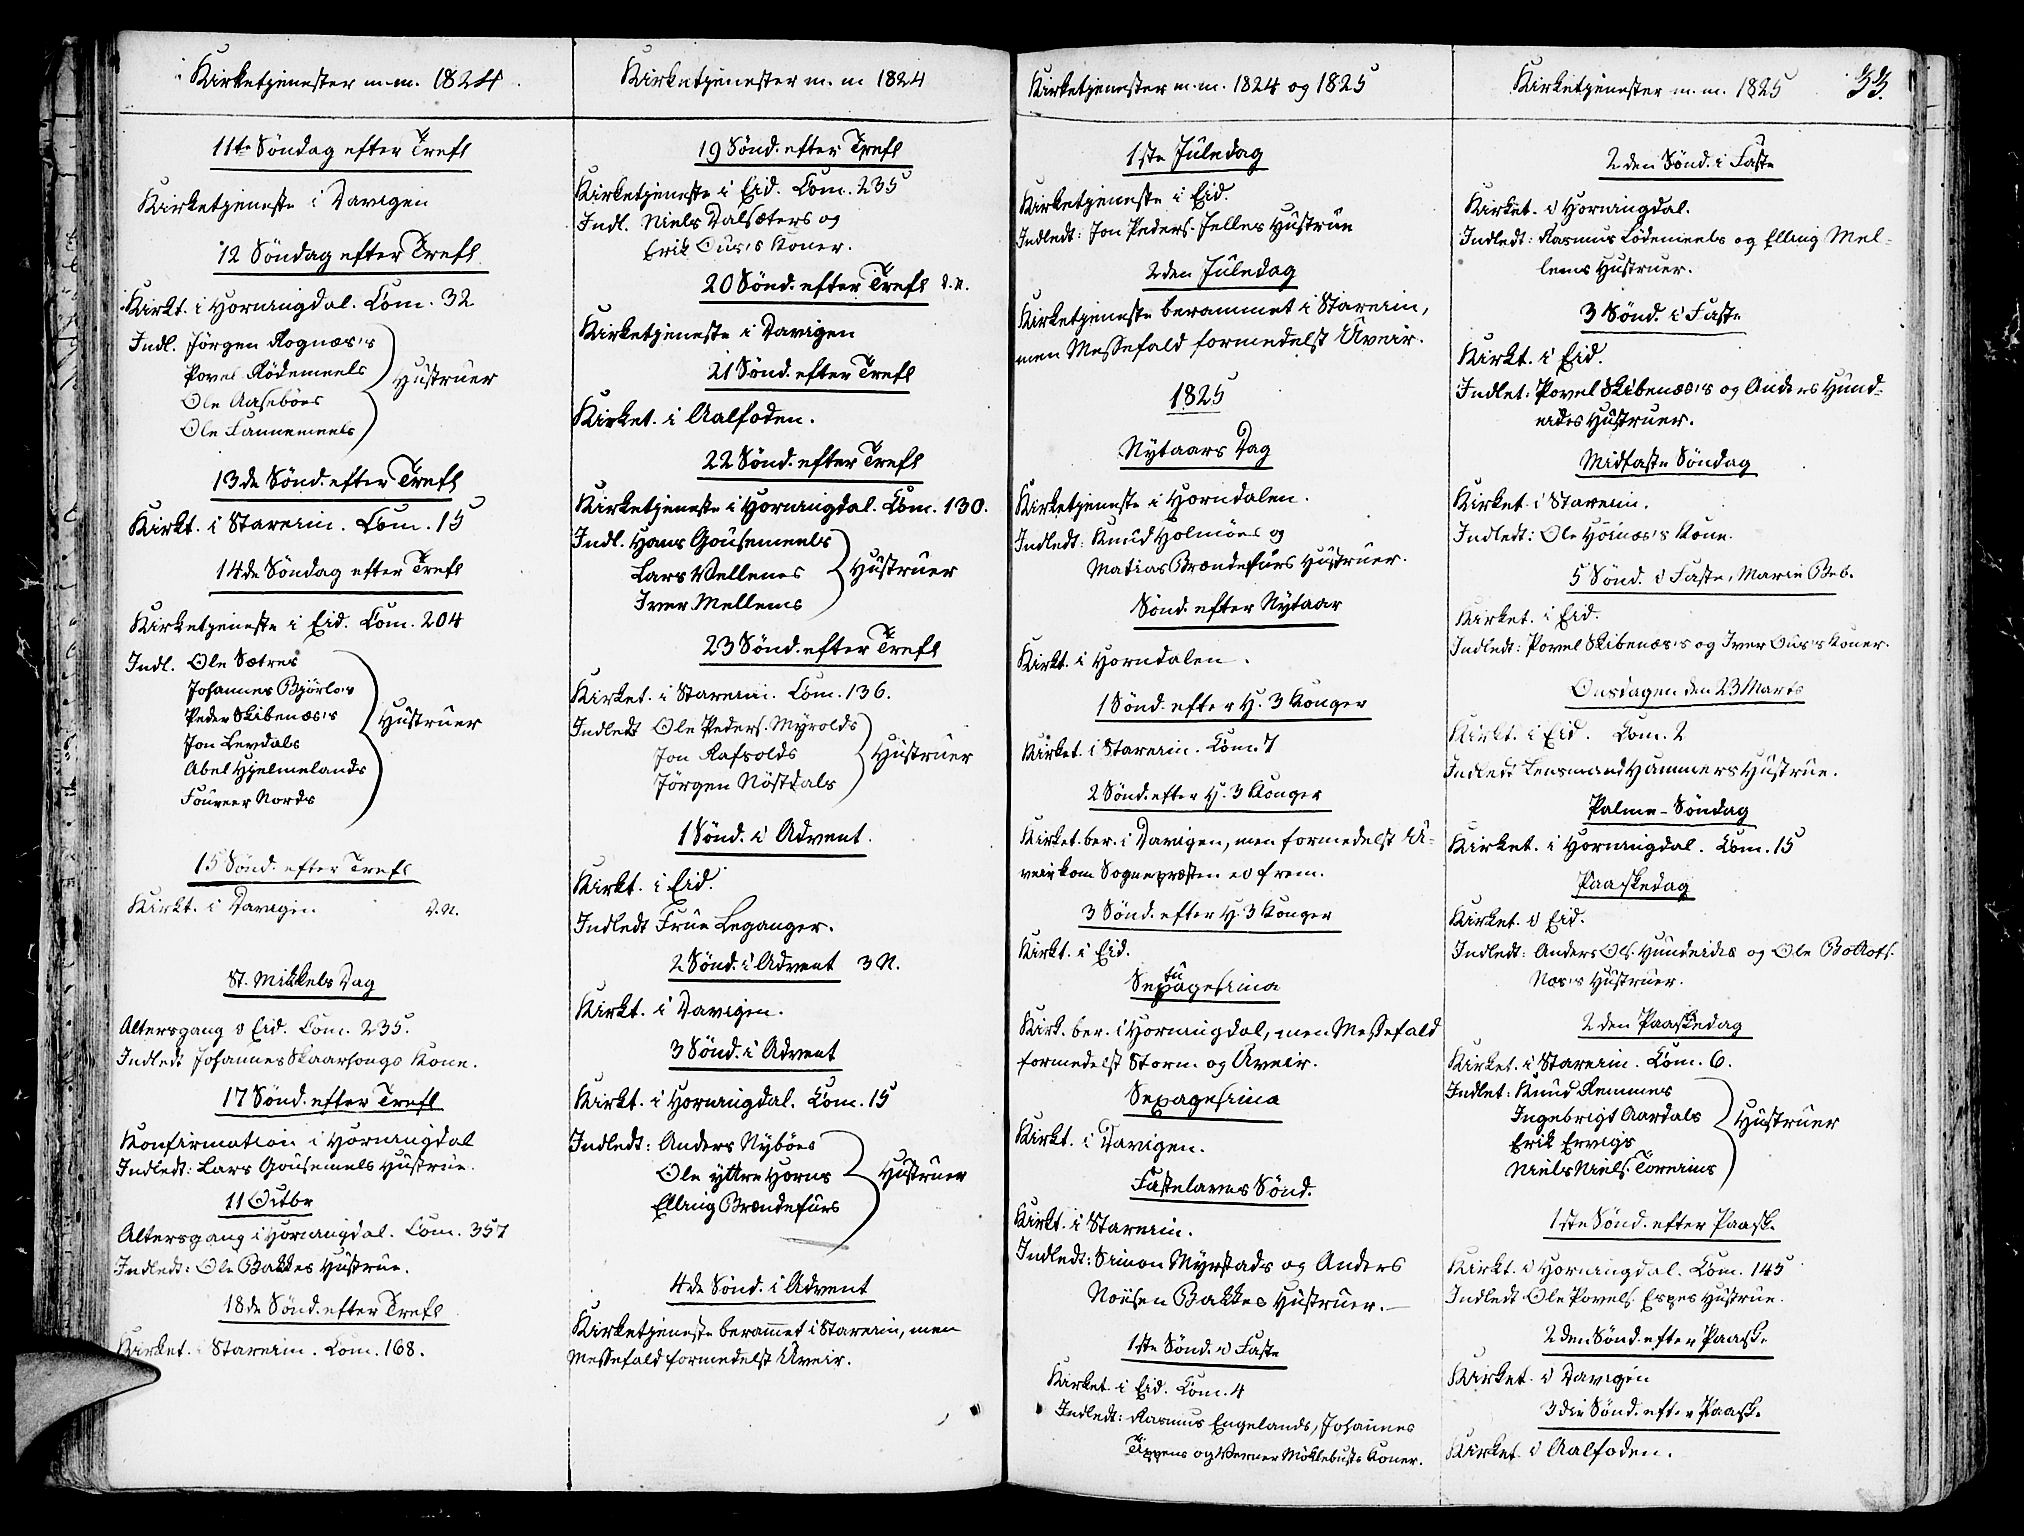 Kirketjenester m.m. 1824.
11te Søndag efter Trefl
Kirketjeneste i Davigen
12 Søndag efter Trefl.
Kirkt. i Horningdal. Com. 32.
Indl. Jörgen Rognæs's
Povel Rödemeels
Ole Aaseböes
Ole Fannemeels
Hustruer
13de Sönd. efter Trefl
Kirkt. i Starein. Com. 15
14de Söndag efter Trefl
Kirketjeneste i Eid. Com. 204
Indl. Ole Sætres
Johannes Bjørlo's
Peder Skibenæs's
Jon Levdals
Abel Hjelmelands
Nords
Hustruer
15 Sönd. efter Trefl
Kirkt. i Davigen 2.N.
St. Mikkels Dag
Altergang i Eid. Com. 235.
Indledt Johannes Skaarhougs Kone.
17 Sönd. efter Trefl
Konfirmation i Horningdal
Indledt: Lars Gousemels Hustrue.
11 Octbr
Altergang i Horningdal. Com. 357
Indledt: Ole Bakkes Hustrue.
18de Sönd. efter Trefl
Kirket. i Starein. Com. 168.
Kirketjenester m. m 1824
19 Sönd. efter Trefl
Kirketjeneste i Eid. Com. 235
Indl. Niels Dalsæters og
Erik Ous's Koner.
20 Sönd. efter Trefl 2.N.
Kirketjeneste i Davigen
21 Sönd. efter Trefl
Kirket. i Aalfoden.
22 Sönd. efter Trefl
Kirketjeneste i Horningdal. Com. 130.
Indl. Hans Gousemeels
Lars Vellenes
Iver Mellems
Hustruer
23 Sönd. efter Trefl
Kirket. i Starein. Com. 136.
Indledt Ole Peders. Myrolds
Jon Rafsolds
Jörgen Nöstdals
Hustruer
1 Sönd. i Advent.
Kirkt. i Eid.
Indledt Frue Leganger.
2 Sönd. i Advent 3 N.
Kirkt. i Davigen.
3 Sönd. i Advent
Kirkt. i Horningdal. Com. 15
Indledt: Anders Nyböes
Ole yttre Horns
Elling Brændefurs
Hustruer
4de Sönd. i Advent
Kirketjeneste berammet i Starein, men
Messefald formedelst Uveir.
Kirketjenester m.m. 1824 og 1825
1ste Juledag
Kirketjeneste i Eid.
Indledt: Jon Peders. Felles Hustrue
2den Juledag
Kirketjeneste berammet i Starein,
men Messefald formedelst Uveir.
1825
Nytaars Dag
Kirketjeneste i Horndalen.
Indledt: Knud Holmöes og
Matias Brændefurs Hustruer.
Sönd. efter Nytaar
Kirkt. i Horndalen.
1 Sönd. efter H. 3 Konger
Kirket. i Starein. Com. 7
2 Sönd. efter H. 3 Konger
Kirket. ber. i Davigen, men formedelst U-
veir kom Sognepræsten ei frem.
3 Sönd. efter H. 3 Konger
Kirkt. i Eid.
Septuagesima
Kirk. ber. i Horningdal, men Messefald
formedelst Storm og Uveir.
Sexagesima
Kirkt. i Davigen.
Fastelavns Sönd.
Kirkt. i Starein.
Indledt: Simon Myrstads og Anders
Bakkes Hustruer.
1ste Sönd. i Faste
Kirket. i Eid. Com. 4
Indledt: Rasmus Engelands, Johannes
og Verner Möklebusts Koner.
Kirketjenester m. m. 1825 33.
2den Sönd. i Faste
Kirket. i Horningdal.
Indledt: Rasmus Lödemeels og Elling Mel-
lems Hustruer.
3 Sönd. i Faste
Kirkt. i Eid.
Indlet: Povel Skibenæs's og Anders Hund-
eides Hustruer.
Midfaste Söndag
Kirket. i Starein.
Indledt: Ole Hoinæs's Kone.
5 Sönd. i Faste, Mariæ Beb.
Kirket. i Eid.
Indledt: Povel Skibenæs's og Iver Ous's Koner.
Onsdagen den 23 Marts
Kirkt. i Eid. Com. 2
Indledt Lensmand Hammers Hustrue.
Palme-Söndag
Kirket. i Horningdal. Com. 15
Paaskedag
Kirket. i Eid.
Indledt: Anders Ols. Hundeides og Ole
Næs's Hustruer.
2den Paaskedag
Kirket. i Starein. Com. 6.
Indlet: Knud Remmes
Ingebrigt Aardals
Erik Ervigs
Niels Niels. Toreims
Hustruer
1ste Sönd. efter Paask.
Kirkt. i Horningdal. Com. 145
Indledt Ole Povels. Espes Hustrue.
2den Sönd. efter Paask.
Kirket. i Davigen
3die Sönd. efter Paask.
Kirket. i Aalfoden.